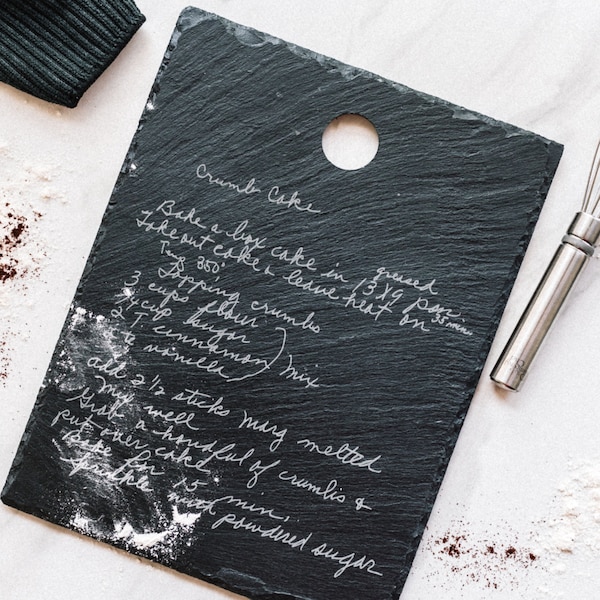 Crumb Cake
Bake a box cake in greased 13X9 pan
Take out cake & leave heat on 35 min
Temp 350°
Topping crumbs
3 cups flour
cup sugar
2 T. cinnamon } mix
vanilla
add 2 1/2 sticks marg melted
Mix well
Grab a handful of crumbs &
put over cake
Bake for 15 min.
Sprinkle with powdered sugar